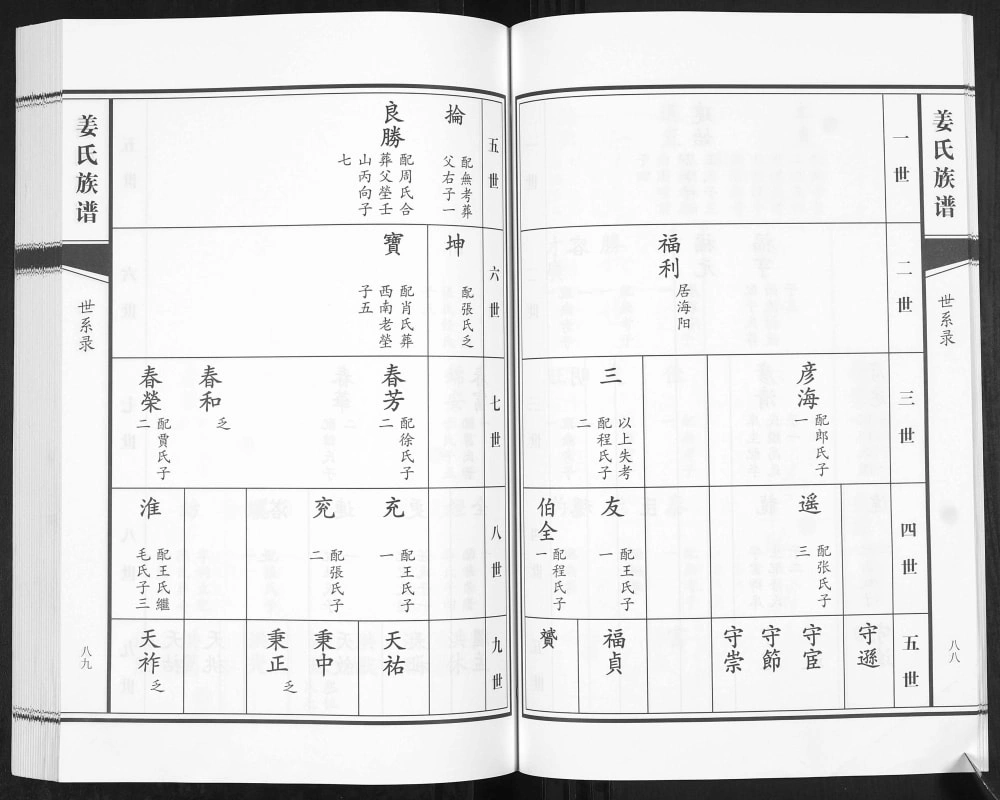 姜氏族谱
世系录
八八
一世
二世
福利
居海阳
三世
彦海
配郎氏子
一
三
以上失考
配程氏子
二
四世
遥
配张氏子
三
友
配王氏子
一
伯全
配程氏子
一
五世
守遜
守宦
守節
守崇
福貞
贇
五世
掄
配無考葬
父右子一
良勝
配周氏合
葬父塋壬
山丙向子
七
六世
坤
配張氏乏
寶
配肖氏葬
西南老塋
子五
七世
春芳
配徐氏子
二
春和
乏
春榮
配賈氏子
二
八世
充
配王氏子
一
兖
配張氏子
二
淮
配王氏繼
毛氏子三
九世
天祐
秉中
秉正
乏
天祚
乏
姜氏族谱
世系录
八九